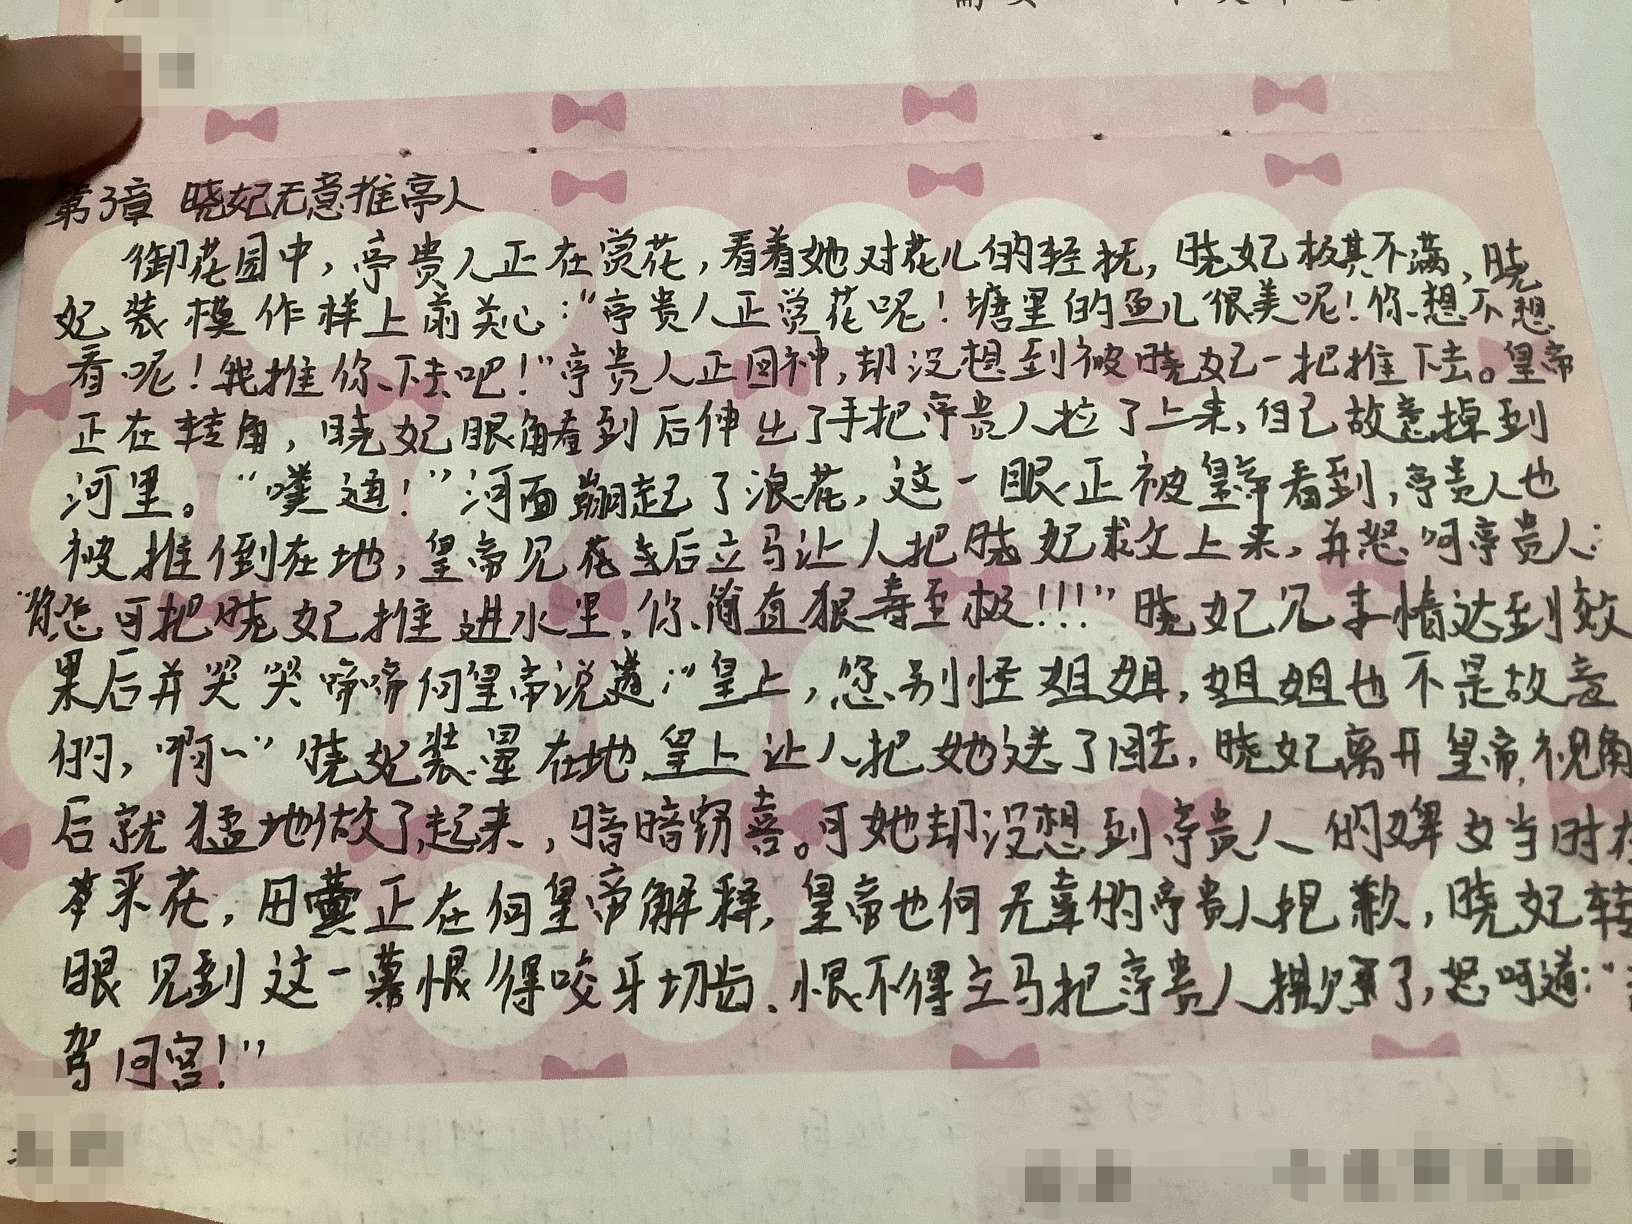 第3章 晓妃无意推亭人
御花园中，亭贵人正在赏花，看着她对花儿的轻抚，晓妃极其不满，晓
妃装模作样上前关心："亭贵人正赏花呢！塘里的鱼儿很美呢！你想不想
看呢！我推你下去吧！"亭贵人正回神，却没想到被晓妃一把推下去。皇帝
正在转角，晓妃眼角看到后伸出了手把亭贵人拉了上来，自己故意掉到
河里。"噗通！"河面蹦起了浪花，这一眼正被皇帝看到，亭贵人也
被推倒在地，皇帝见花后立马让人把晓妃救上来，并怒呵亭贵人：
"你怎可把晓妃推进水里，你简直狠毒至极！！！"晓妃见事情达到效
果后并哭哭啼啼向皇帝说道："皇上，您别怪姐姐，姐姐也不是故意
们，啊～"晓妃装晕在地，皇上让人把她送了回去，晓妃离开皇帝视角
后就猛地做了起来，暗暗窃喜。可她却没想到亭贵人的婢女当时在
采花，用正在向皇帝解释，皇帝也向无辜的亭贵人抱歉，晓妃转
眼见到这一幕恨得咬牙切齿，恨不得立马把亭贵人撕了，怒呵道："
驾回宫！"